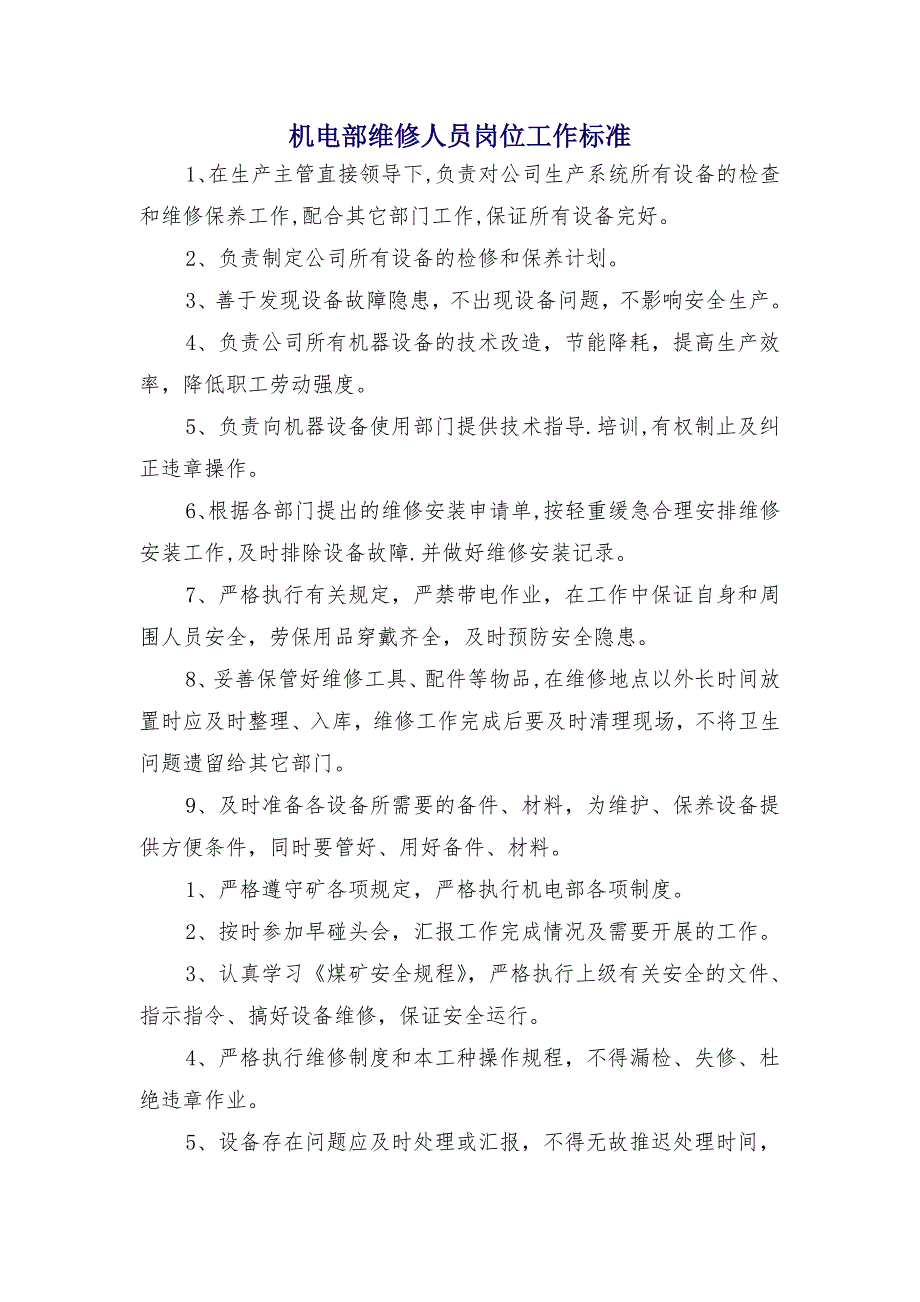 机电部维修人员岗位工作标准
1、在生产主管直接领导下,负责对公司生产系统所有设备的检查
和维修保养工作,配合其它部门工作,保证所有设备完好。
2、负责制定公司所有设备的检修和保养计划。
3、善于发现设备故障隐患，不出现设备问题，不影响安全生产。
4、负责公司所有机器设备的技术改造，节能降耗，提高生产效
率，降低职工劳动强度。
5、负责向机器设备使用部门提供技术指导.培训,有权制止及纠
正违章操作。
6、根据各部门提出的维修安装申请单,按轻重缓急合理安排维修
安装工作,及时排除设备故障.并做好维修安装记录。
7、严格执行有关规定，严禁带电作业，在工作中保证自身和周
围人员安全，劳保用品穿戴齐全，及时预防安全隐患。
8、妥善保管好维修工具、配件等物品,在维修地点以外长时间放
置时应及时整理、入库，维修工作完成后要及时清理现场，不将卫生
问题遗留给其它部门。
9、及时准备各设备所需要的备件、材料，为维护、保养设备提
供方便条件，同时要管好、用好备件、材料。
1、严格遵守矿各项规定，严格执行机电部各项制度。
2、按时参加早碰头会，汇报工作完成情况及需要开展的工作。
3、认真学习《煤矿安全规程》，严格执行上级有关安全的文件、
指示指令、搞好设备维修，保证安全运行。
4、严格执行维修制度和本工种操作规程，不得漏检、失修、杜
绝违章作业。
5、设备存在问题应及时处理或汇报，不得无故推迟处理时间，